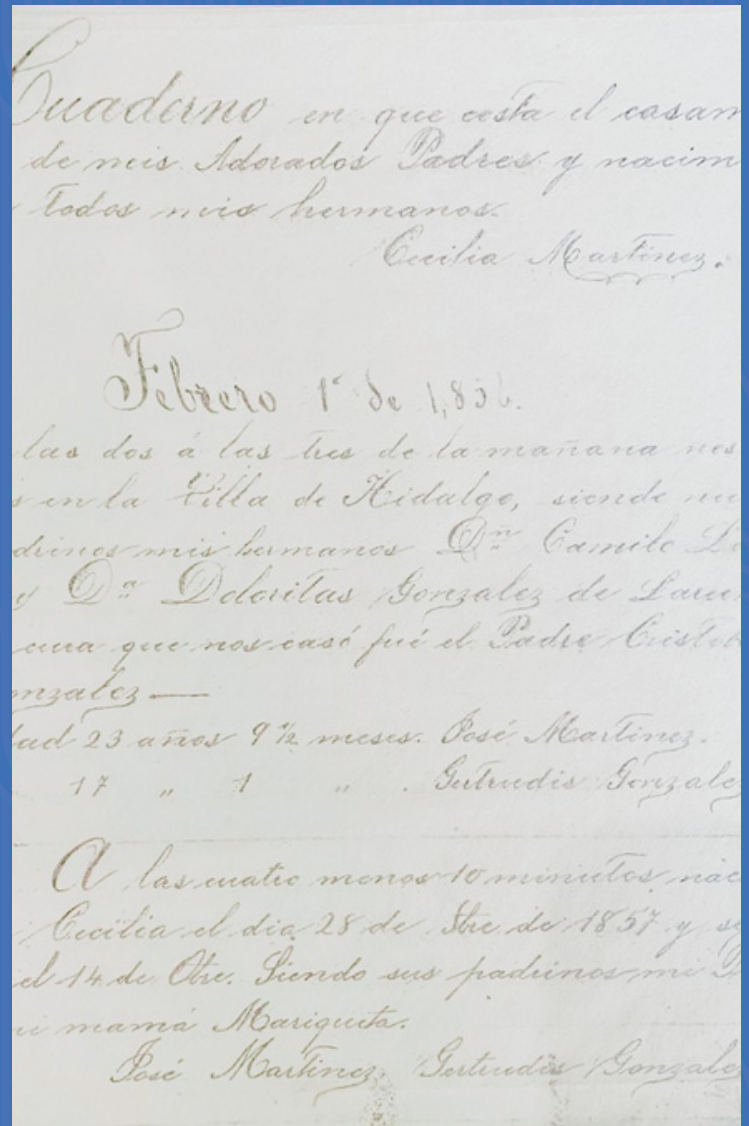 Cuaderno en que costa el casam
de mis Adorados Padres y nacim
todos mis hermanos.
Cecilia Martinez.
Febrero 1º de 1,856.
las dos á las tres de la mañana nos
en la Villa de Hidalgo, siendo nu
drinos mis hermanos Dn Camilo
y Da Doloritas Gonzalez de
cura que nos casó fué el Padre Cristob
nzalez —
dad 23 años 9 ½ meses. José Martinez.
17 " 1 " . Gertrudis Gonzalez
A las cuatro menos 10 minutos nac
Cecilia el dia 28 de Sbre de 1857 y
el 14 de Obre. Siendo sus padrinos mi
mamá Mariquita.
José Martinez. Gertrudis Gonzalez